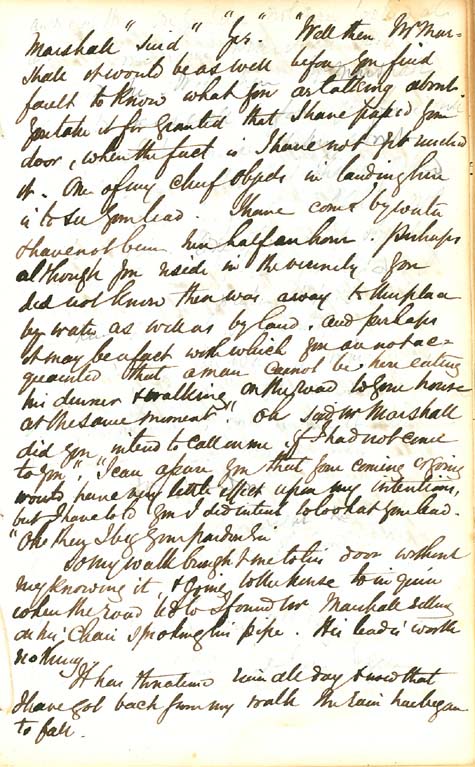 Marshall" said "Yes". "Well then Mr Mar-
shall it would be as well before you find
fault to know what you are talking about.
You take it for granted that I have passed your
door, when the fact is I have not yet reached
it. One of my chief objects in landing here
is to see your lead. I have come by water
& have not been here half an hour. Perhaps
although you reside in the vicinity you
did not know there was a way to this place
by water as well as by land. and perhaps
it may be a fact with which you are not ac-
quainted that a man cannot be here eating
his dinner & walking on the road to your house
at the same moment". "Oh said Mr Marshall
did you intend to call on me if I had not come
to you", "I can assure you that your coming or going
would have very little effect upon my intentions,
but I have told you I did intend to look at your lead.
"Oh then I beg your pardon Sir
So my walk brought me to his door without
my knowing it, & going to the house to inquire
where the road led to I found Mr Marshall sitting
on his chair smoking his pipe. His lead is worth
nothing
It has threatened rain all day & now that
I have got back from my walk the rain has began
to fall.